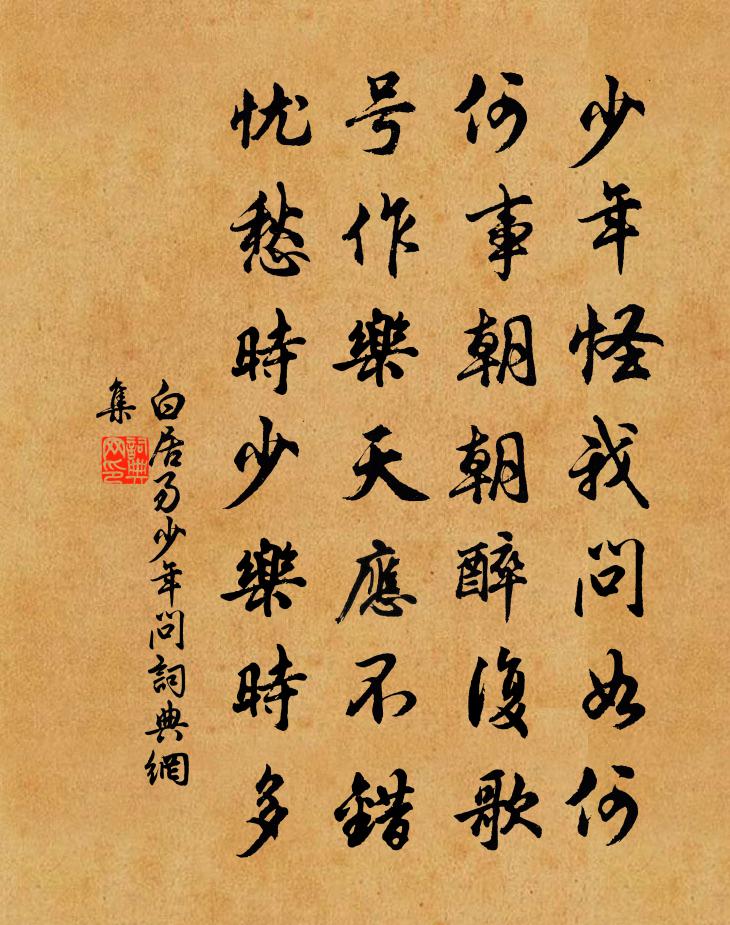 少年怪我問如何
何事朝朝醉復歌
号作樂天應不錯
忧愁時少樂時多
白居易少年問詞典網
集
詞典
网印